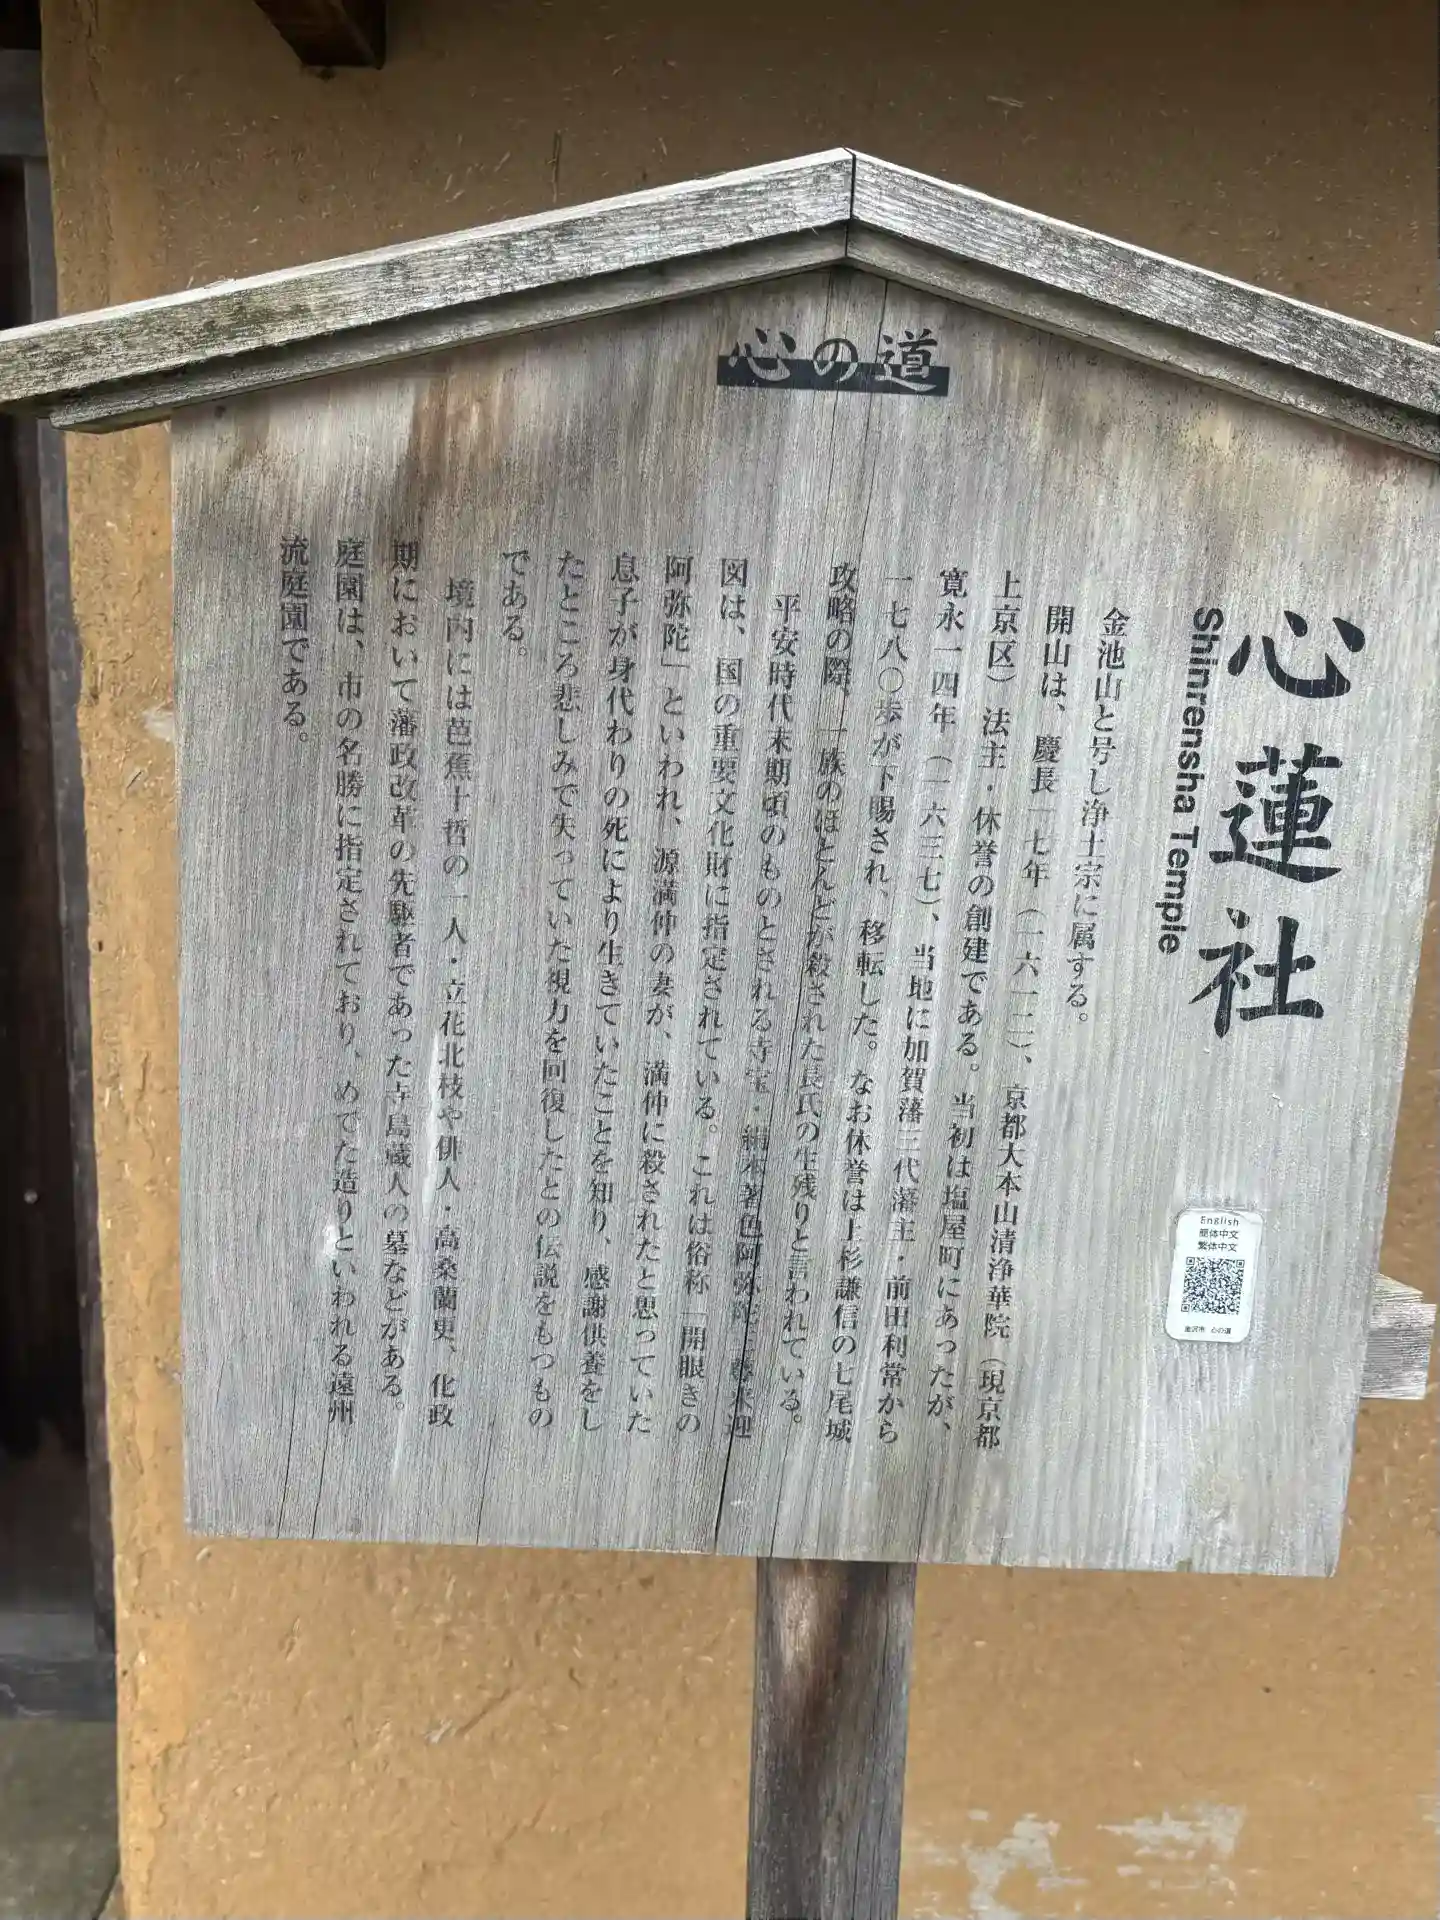 心の道
心蓮社
Shinrensha Temple
金池山と号し浄土宗に属する。
開山は、慶長一七年（一六一二）、京都大本山清浄華院（現京都
上京区）法主・休誉の創建である。当初は塩屋町にあったが、
寛永一四年（一六三七）、当地に加賀藩三代藩主・前田利常から
一七八〇歩が下賜され、移転した。なお休誉は上杉謙信の七尾城
攻略の際、一族のほとんどが殺された長氏の生残りと言われている。
平安時代末期頃のものとされる寺宝・絹本著色阿弥陀三尊来迎
図は、国の重要文化財に指定されている。これは俗称「開眼きの
阿弥陀」といわれ、源満仲の妻が、満仲に殺されたと思っていた
息子が身代わりの死により生きていたことを知り、感謝供養をし
たところ悲しみで失っていた視力を回復したとの伝説をもつもの
である。
境内には芭蕉十哲の一人・立花北枝や俳人・高桑蘭更、化政
期において藩政改革の先駆者であった寺島蔵人の墓などがある。
庭園は、市の名勝に指定されており、めでた造りといわれる遠州
流庭園である。
English
簡体中文
繁体中文
金沢市 心の道